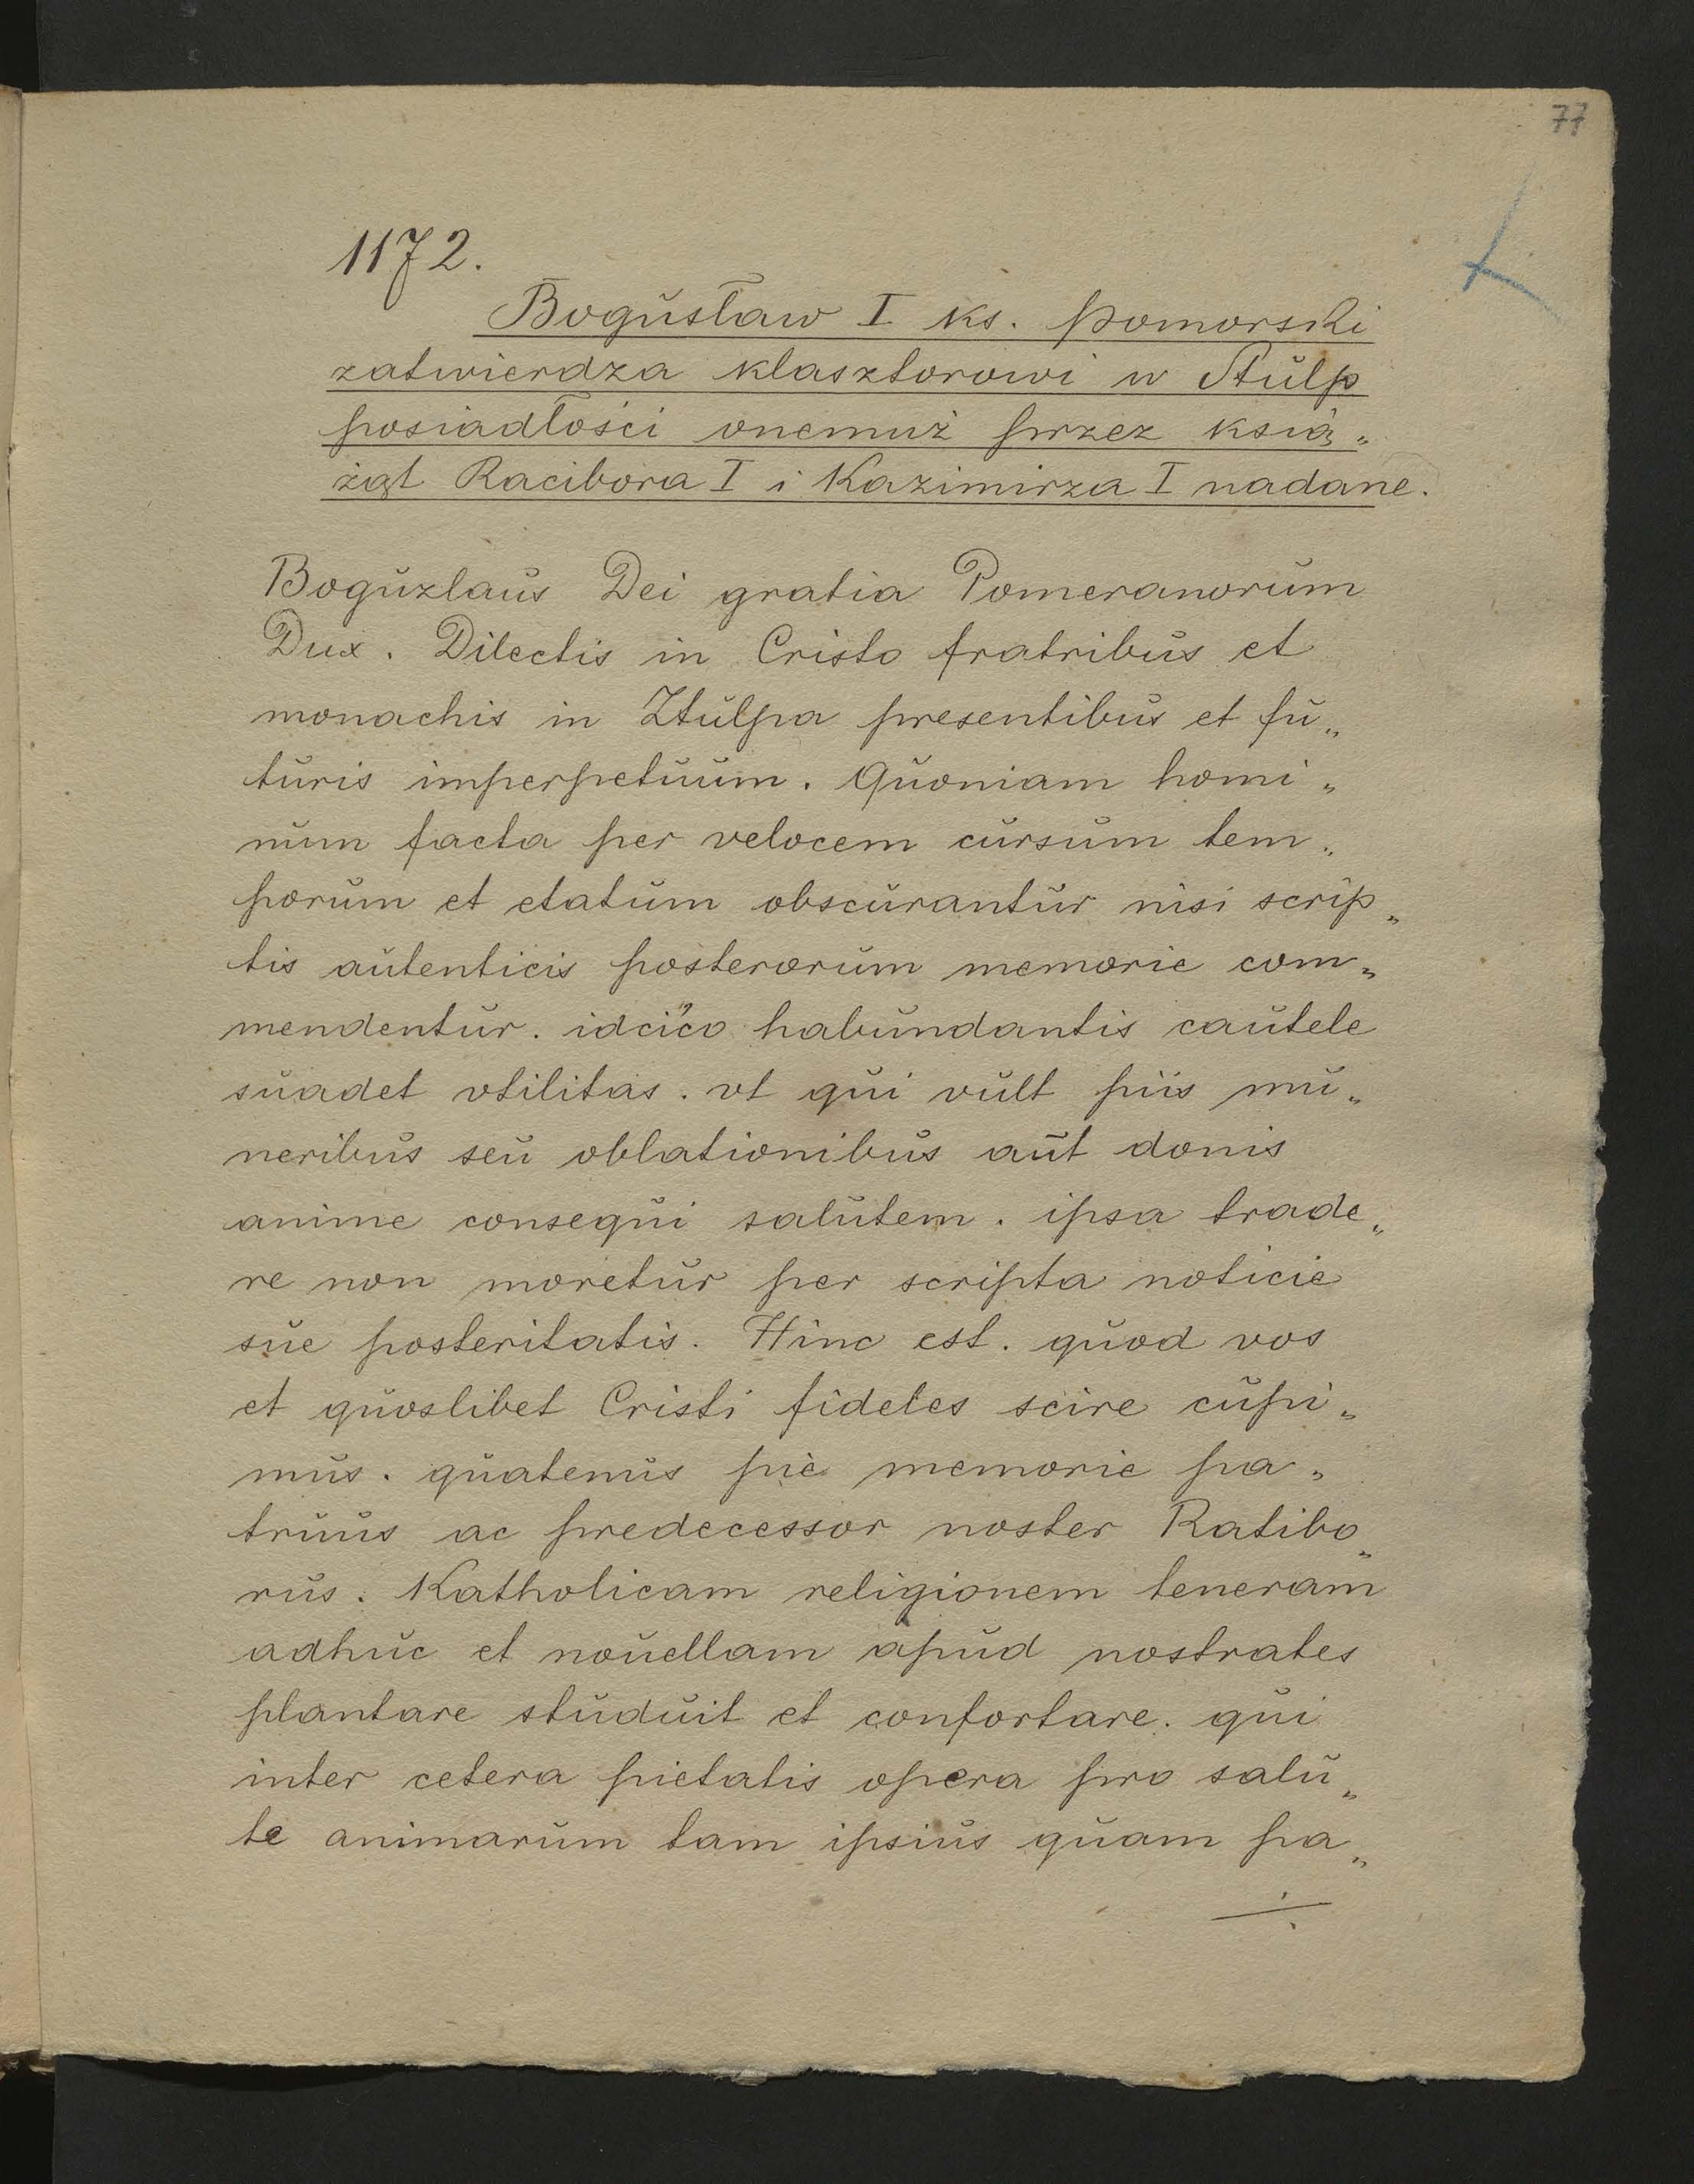 77
1172.
Bogusław I ks. Pomorski
zatwierdza klasztorowi w Stulp
posiadłości onemuż przez ksią„
żąt Racibora I i Kazimirza I nadane.
Boguzlaus Dei gratia Pomeranorum
Dux. Dilectis in Cristo fratribus et
monachis in Ztulpa presentibus et fu„
turis imperpetuum. Quoniam homi„
num facta per velocem cursum tem„
porum et etatum obscurantur nisi scrip„
tis autenticis posterorum memorie com„
mendentur. idcico habundantis cautele
suadet vtilitas. vt qui vult piis mu„
neribus seu oblationibus aut donis
anime consequi salutem. ipsa trade„
re non moretur per scripta noticie
sue posteritatis. Hinc est. quod vos
et quoslibet Cristi fideles scire cupi„
mus. quatenus pie memorie pa„
truus ac predecessor noster Ratibo„
rus. Katholicam religionem teneram
adhuc et nouellam apud nostrates
plantare studuit et confortare. qui
inter cetera pietatis opera pro salu„
te animarum tam ipsius quam pa„